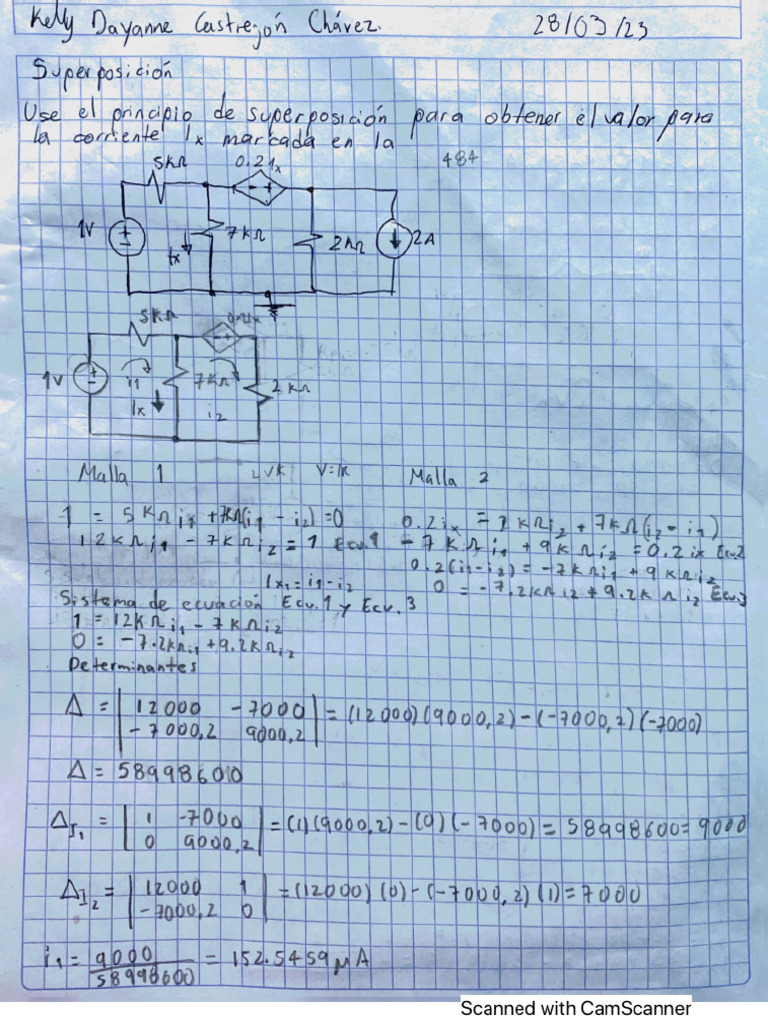 Kelly Dayanne Castrejón Chávez. 28/03/23
Superposición
Use el principio de superposición para obtener el valor para
la corriente Ix marcada en la
484
5kΩ 0.2Ix
1V Ix 7kΩ 2kΩ 2A
5kΩ 0.2Ix
1V i1 7kΩ 2kΩ
Ix i2
Malla 1 V=IR Malla 2
1 = 5kΩi1 + 7kΩ(i1 - i2) = 0 0.2ix = 2kΩi2 + 7kΩ(i2 - i1)
12kΩi1 - 7kΩi2 = 1 Ecu.1 -7kΩi1 + 9kΩi2 = 0.2ix Ecu2
0.2(i1-i2) = -7kΩi1 + 9kΩi2
Ix1 = i1 - i2 0 = -7.2kΩi2 + 9.2kΩi2 Ecu.3
Sistema de ecuación Ecu.1 y Ecu.3
1 = 12kΩi1 - 7kΩi2
0 = -7.2kΩi1 + 9.2kΩi2
Determinantes
Δ = | 12000 -7000 | = (12000)(9000,2) - (-7000,2)(-7000)
| -7000,2 9000,2 |
Δ = 58998600
ΔI1 = | 1 -7000 | = (1)(9000,2) - (0)(-7000) = 58998600 = 9000
| 0 9000,2 |
ΔI2 = | 12000 1 | = (12000)(0) - (-7000,2)(1) = 7000
| -7000,2 0 |
i1 = 9000 = 152.5459μA
58998600
Scanned with CamScanner